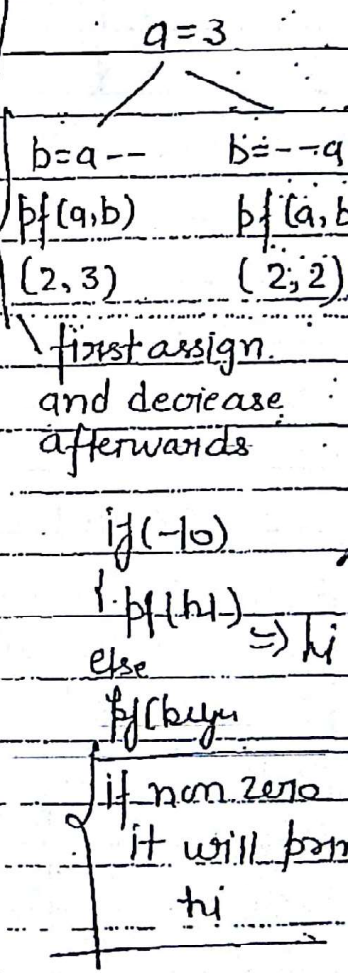 a=3
b=a-- b=--a
pf(a,b) pf(a,b
(2,3) (2,2)
first assign.
and decrease
afterwards
if(-10)
{pf(hi)
=> hi
else
pf(
if non zero
it will prin
hi